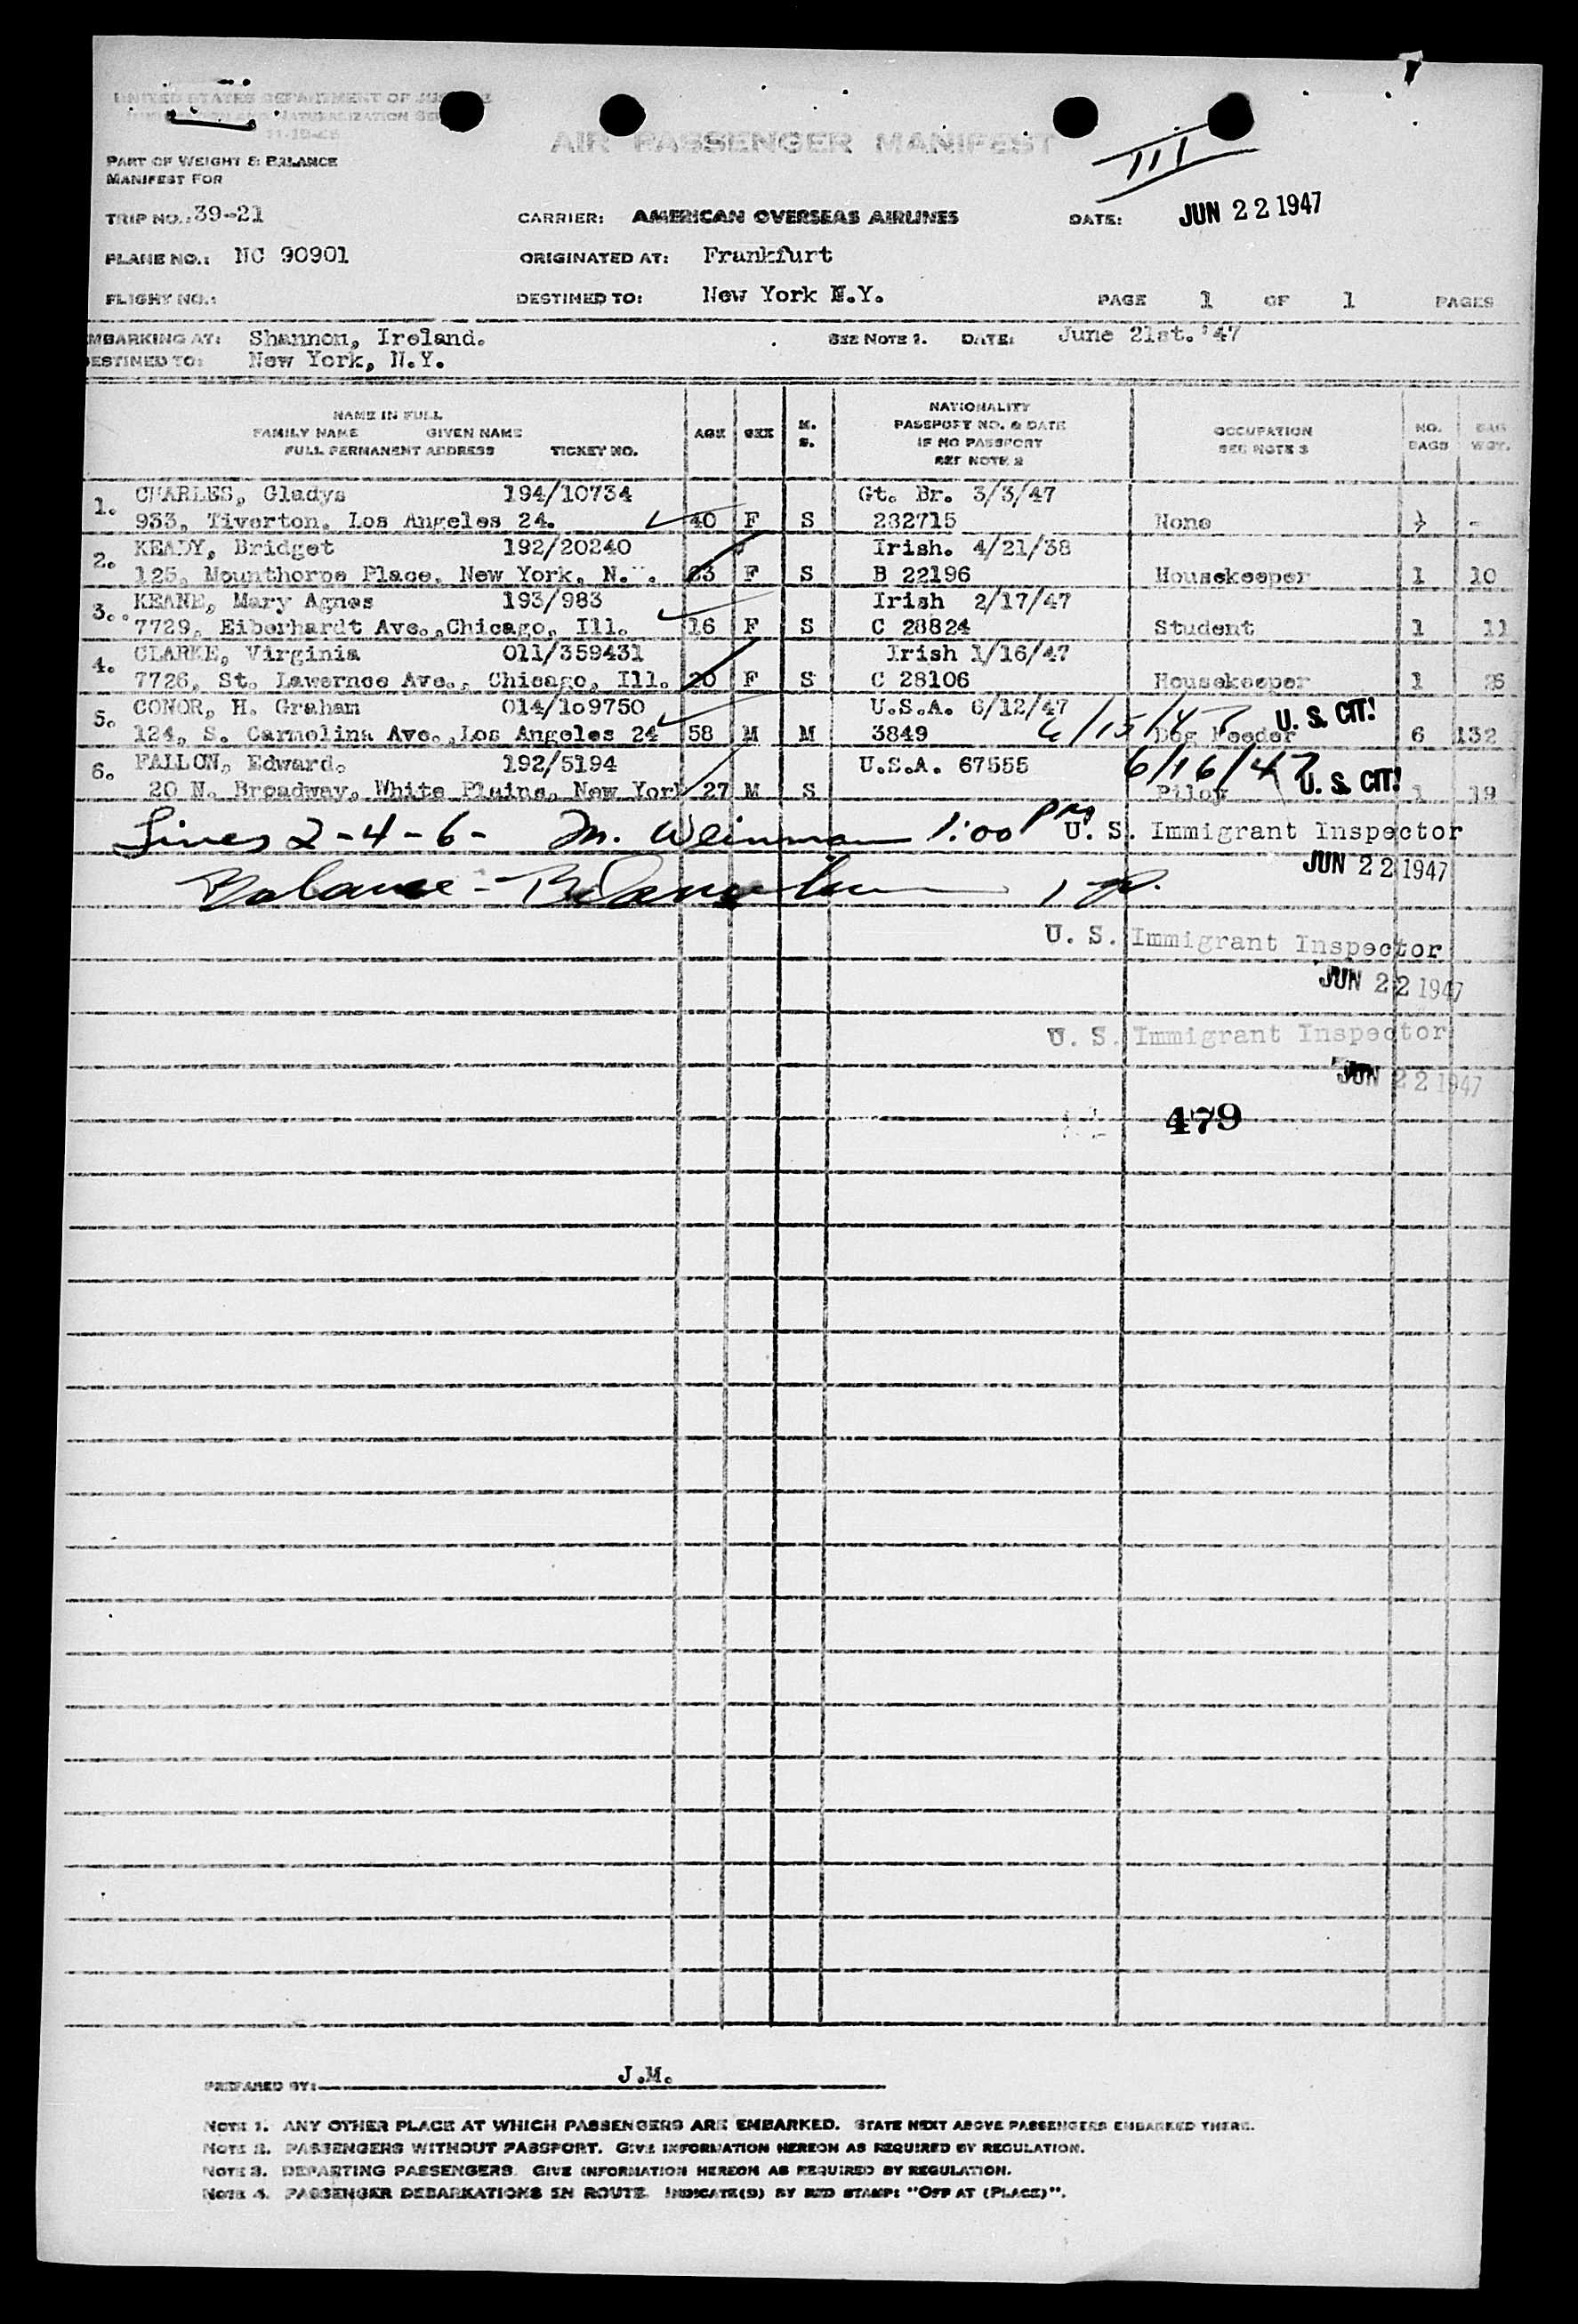 UNITED STATES DEPARTMENT OF JUSTICE
IMMIGRATION AND NATURALIZATION SER
11-15-45
AIR PASSENGER MANIFEST
III
PART OF WEIGHT & BALANCE
MANIFEST FOR
TRIP NO.: 39-21 CARRIER: AMERICAN OVERSEAS AIRLINES DATE: JUN 22 1947
PLANE NO.: NC 90901 ORIGINATED AT: Frankfurt
FLIGHT NO.: DESTINED TO: New York N.Y. PAGE 1 OF 1 PAGES
MBARKING AT: Shannon, Ireland. SEE NOTE 1. DATE: June 21st.'47
ESTINED TO: New York, N.Y.
NAME IN FULL
FAMILY NAME GIVEN NAME
FULL PERMANENT ADDRESS TICKET NO.
AGE SEX M. S.
NATIONALITY
PASSPORT NO. & DATE
IF NO PASSPORT
SEE NOTE 2
OCCUPATION
SEE NOTE 3
NO. BAGS
BAG WGT.
1. CHARLES, Gladys 194/10734 Gt. Br. 3/3/47
933, Tiverton, Los Angeles 24. 40 F S 282715 None -
2. KEADY, Bridget 192/20240 Irish. 4/21/38
125, Mounthorpe Place, New York, N. . 23 F S B 22196 Housekeeper 1 10
3. KEANE, Mary Agnes 193/983 Irish 2/17/47
7729, Eiberhardt Ave.,Chicago, Ill. 16 F S C 28824 Student 1 11
4. CLARKE, Virginia 011/359431 Irish 1/16/47
7726, St. Lawernce Ave., Chicago, Ill. 20 F S C 28106 Housekeeper 1 26
5. CONOR, H. Graham 014/109750 U.S.A. 6/12/47 6/15/47 U. S. CIT!
124, S. Carmelina Ave.,Los Angeles 24 58 M M 3849 Dog Feeder 6 132
6. FALLON, Edward. 192/5194 U.S.A. 67555 6/16/47 U. S. CIT!
20 N. Broadway, White Plains, New York 27 M S Pilot 1 19
Lines 2-4-6- M. Weinman 1:00 PM U. S. Immigrant Inspector
JUN 22 1947
Balance -
U. S. Immigrant Inspector
JUN 22 1947
U. S. Immigrant Inspector
JUN 22 1947
479
PREPARED BY: J.M.
NOTE 1. ANY OTHER PLACE AT WHICH PASSENGERS ARE EMBARKED. STATE NEXT ABOVE PASSENGERS EMBARKED THERE.
NOTE 2. PASSENGERS WITHOUT PASSPORT. GIVE INFORMATION HEREON AS REQUIRED BY REGULATION.
NOTE 3. DEPARTING PASSENGERS. GIVE INFORMATION HEREON AS REQUIRED BY REGULATION.
NOTE 4. PASSENGER DEBARKATIONS EN ROUTE. INDICATE(D) BY RED STAMP: "OFF AT (PLACE)".